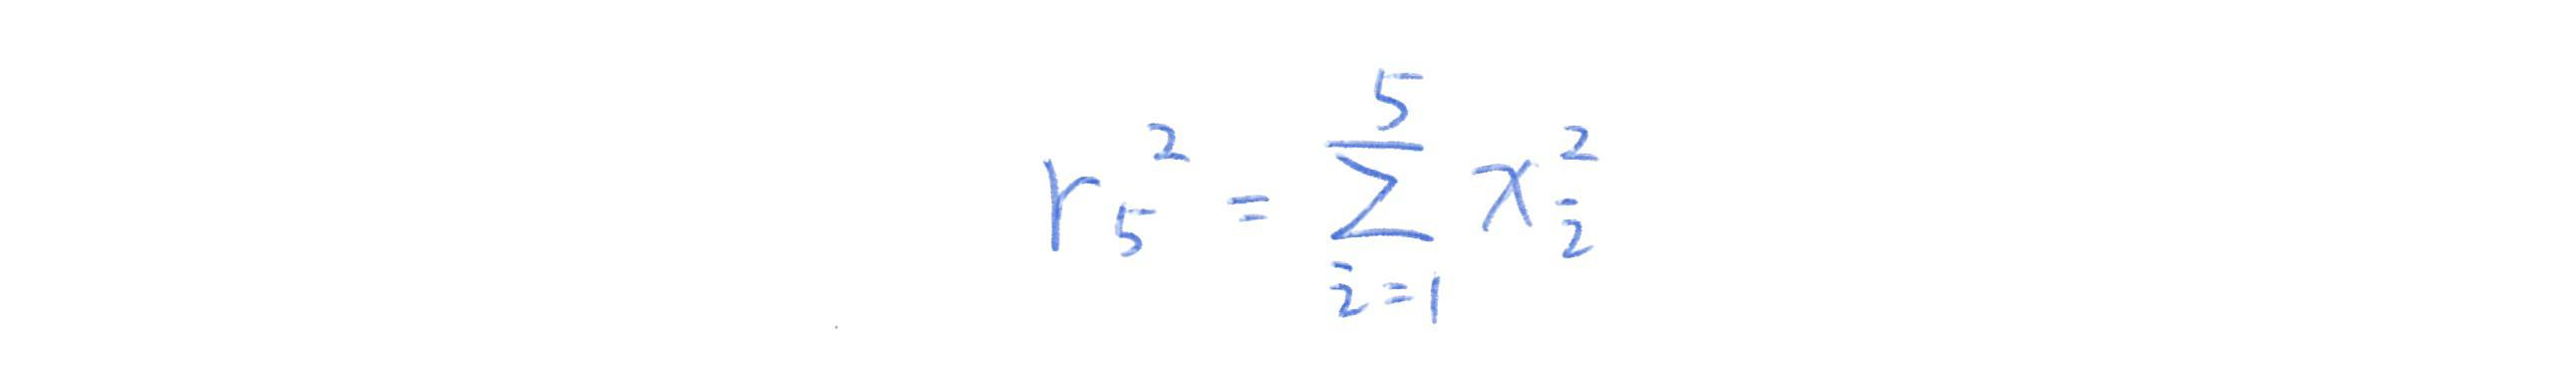 r₅² = ∑_{i=1}^{5} x_i²